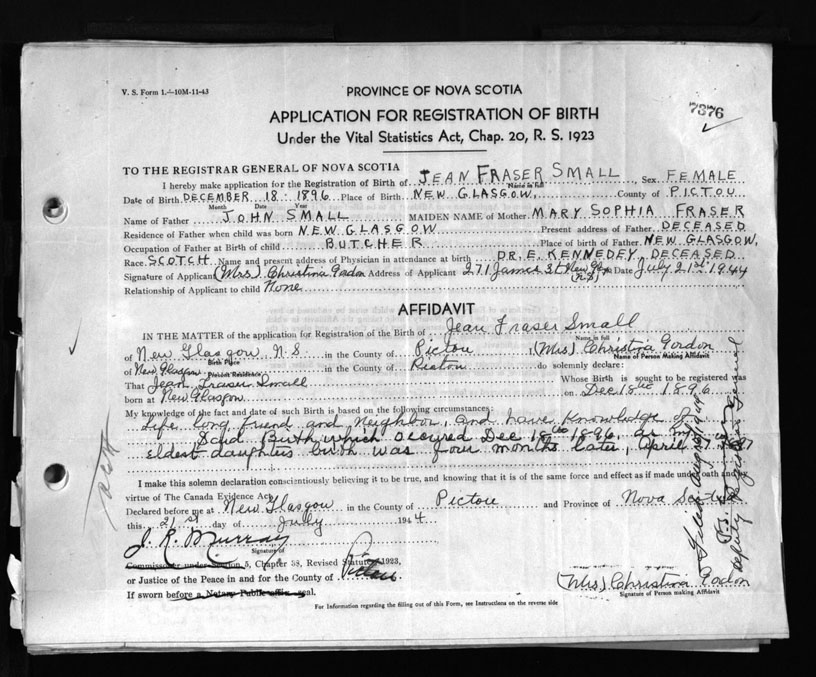 V. S. Form 1.—10M-11-43
PROVINCE OF NOVA SCOTIA
7376
APPLICATION FOR REGISTRATION OF BIRTH
Under the Vital Statistics Act, Chap. 20, R. S. 1923
TO THE REGISTRAR GENERAL OF NOVA SCOTIA
I hereby make application for the Registration of Birth of JEAN FRASER SMALL Sex FEMALE
Name in full
Date of Birth DECEMBER 18 - 1896 Place of Birth NEW GLASGOW, County of PICTOU
Month Date Year
Name of Father JOHN SMALL MAIDEN NAME of Mother MARY SOPHIA FRASER
Residence of Father when child was born NEW GLASGOW Present address of Father DECEASED
Occupation of Father at Birth of child BUTCHER Place of birth of Father NEW GLASGOW,
Race SCOTCH Name and present address of Physician in attendance at birth DR. E. KENNEDEY, DECEASED
Signature of Applicant (Mrs) Christina Gordon Address of Applicant 271 James St New Glas (N.S) Date July 21st 1944
Relationship of Applicant to child None
AFFIDAVIT
IN THE MATTER of the application for Registration of the Birth of Jean Fraser Small
Name in full
of New Glasgow N.S in the County of Pictou I, (Mrs) Christina Gordon
Birth Place Name of Person Making Affidavit
of New Glasgow in the County of Pictou do solemnly declare:
Present Residence
That Jean Fraser Small Whose Birth is sought to be registered was
born at New Glasgow on Dec 18th 1896
My knowledge of the fact and date of such Birth is based on the following circumstances:
Life long friend and neighbor, and have knowledge of
Said Birth which occured Dec 18th 1896, as my
eldest daughters birth was four months later, April 1897
I make this solemn declaration conscientiously believing it to be true, and knowing that it is of the same force and effect as if made under oath and
virtue of The Canada Evidence Act.
Declared before me at New Glasgow in the County of Pictou and Province of Nova Scotia
this 21st day of July 1944
J. R. Murray
Signature of
Commissioner under Section 5, Chapter 38, Revised Statutes 1923,
or Justice of the Peace in and for the County of Pictou
If sworn before a Notary Public affix seal.
(Mrs) Christina Gordon
Signature of Person making Affidavit
For Information regarding the filling out of this Form, see Instructions on the reverse side
Deputy Registrar General